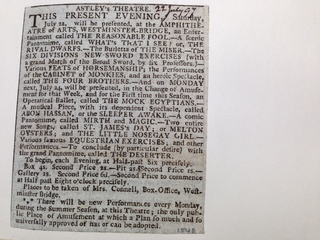 ASTLEY's THEATRE. 22 July 97
THIS PRESENT EVENING, Saturday,
July 22, will be presented, at the AMPHITHE-
ATRE of ARTS, WESTMINSTER-BRIDGE, an Enter-
tainment called THE REASONABLE FOOL.—A Comic
Pantomime, called WHAT'S THAT I SEE? or, THE
RIVAL DWARFS.—The Business of THE MISER.—The
SIX DIVISIONS NEW SWORD EXERCISES (with
a grand Match of the Broad Sword, by six Professors.)—
Various FEATS of HORSEMANSHIP; the Performances
of the CABINET of MONKIES; and an heroic Spectacle,
called THE FOUR BROTHERS.—And on MONDAY
next, July 24, will be presented, in the Change of Amuse-
ment for that Week, and for the First time this Season, an
Operatical Ballet, called THE MOCK EGYPTIANS.—
A musical Piece, with its dependent Spectacle, called
ABON HASSAN, or the SLEEPER AWAKE.—A comic
Pantomime, called MIRTH and MAGIC.—Two entire
new Songs, called ST. JAMES'S DAY; or, MELTON
OYSTERS; and THE LITTLE NOSEGAY GIRL.—
Various famous EQUESTRIAN EXERCISES; and other
Performances.—To conclude (by particular desire) with
the grand Pantomime, called THE DESERTER.
To begin, each Evening, at Half-past Six precisely.
Box 4s. Second Price 2s.—Pit 2s. Second Price 1s.—
Gallery 1s. Second Price 6d.—Second Price to commence
at Half past Eight o'clock precisely.
Places to be taken of Mrs. Connell, Box-Office, West-
minster Bridge.
*⁎* There will be new Performances every Monday,
during the Summer Season, at this Theatre; the only pub-
lic Place of Amusement at which a Plan so much and so
universally approved of has or can be adopted.